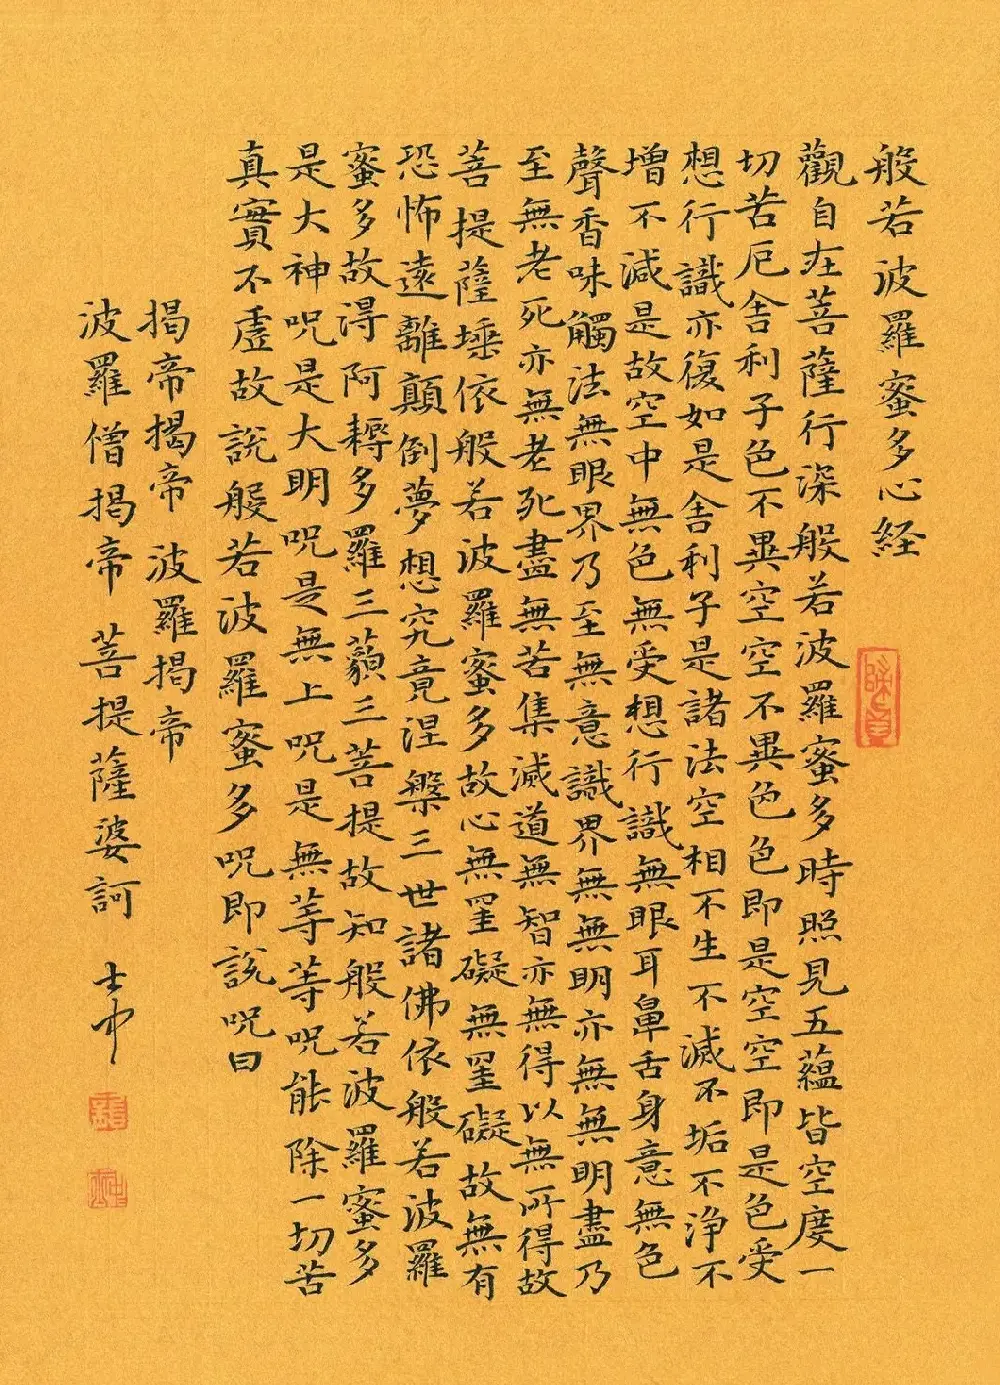 般若波羅蜜多心経
觀自在菩薩行深般若波羅蜜多時照見五蘊皆空度一
切苦厄舍利子色不異空空不異色色即是空空即是色受
想行識亦復如是舍利子是諸法空相不生不滅不垢不淨不
增不減是故空中無色無受想行識無眼耳鼻舌身意無色
聲香味觸法無眼界乃至無意識界無無明亦無無明盡乃
至無老死亦無老死盡無苦集滅道無智亦無得以無所得故
菩提薩埵依般若波羅蜜多故心無罣礙無罣礙故無有
恐怖遠離顛倒夢想究竟涅槃三世諸佛依般若波羅
蜜多故得阿耨多羅三藐三菩提故知般若波羅蜜多
是大神呪是大明呪是無上呪是無等等呪能除一切苦
真實不虛故說般若波羅蜜多呪即說呪曰
揭帝揭帝 波羅揭帝
波羅僧揭帝 菩提薩婆訶 士中